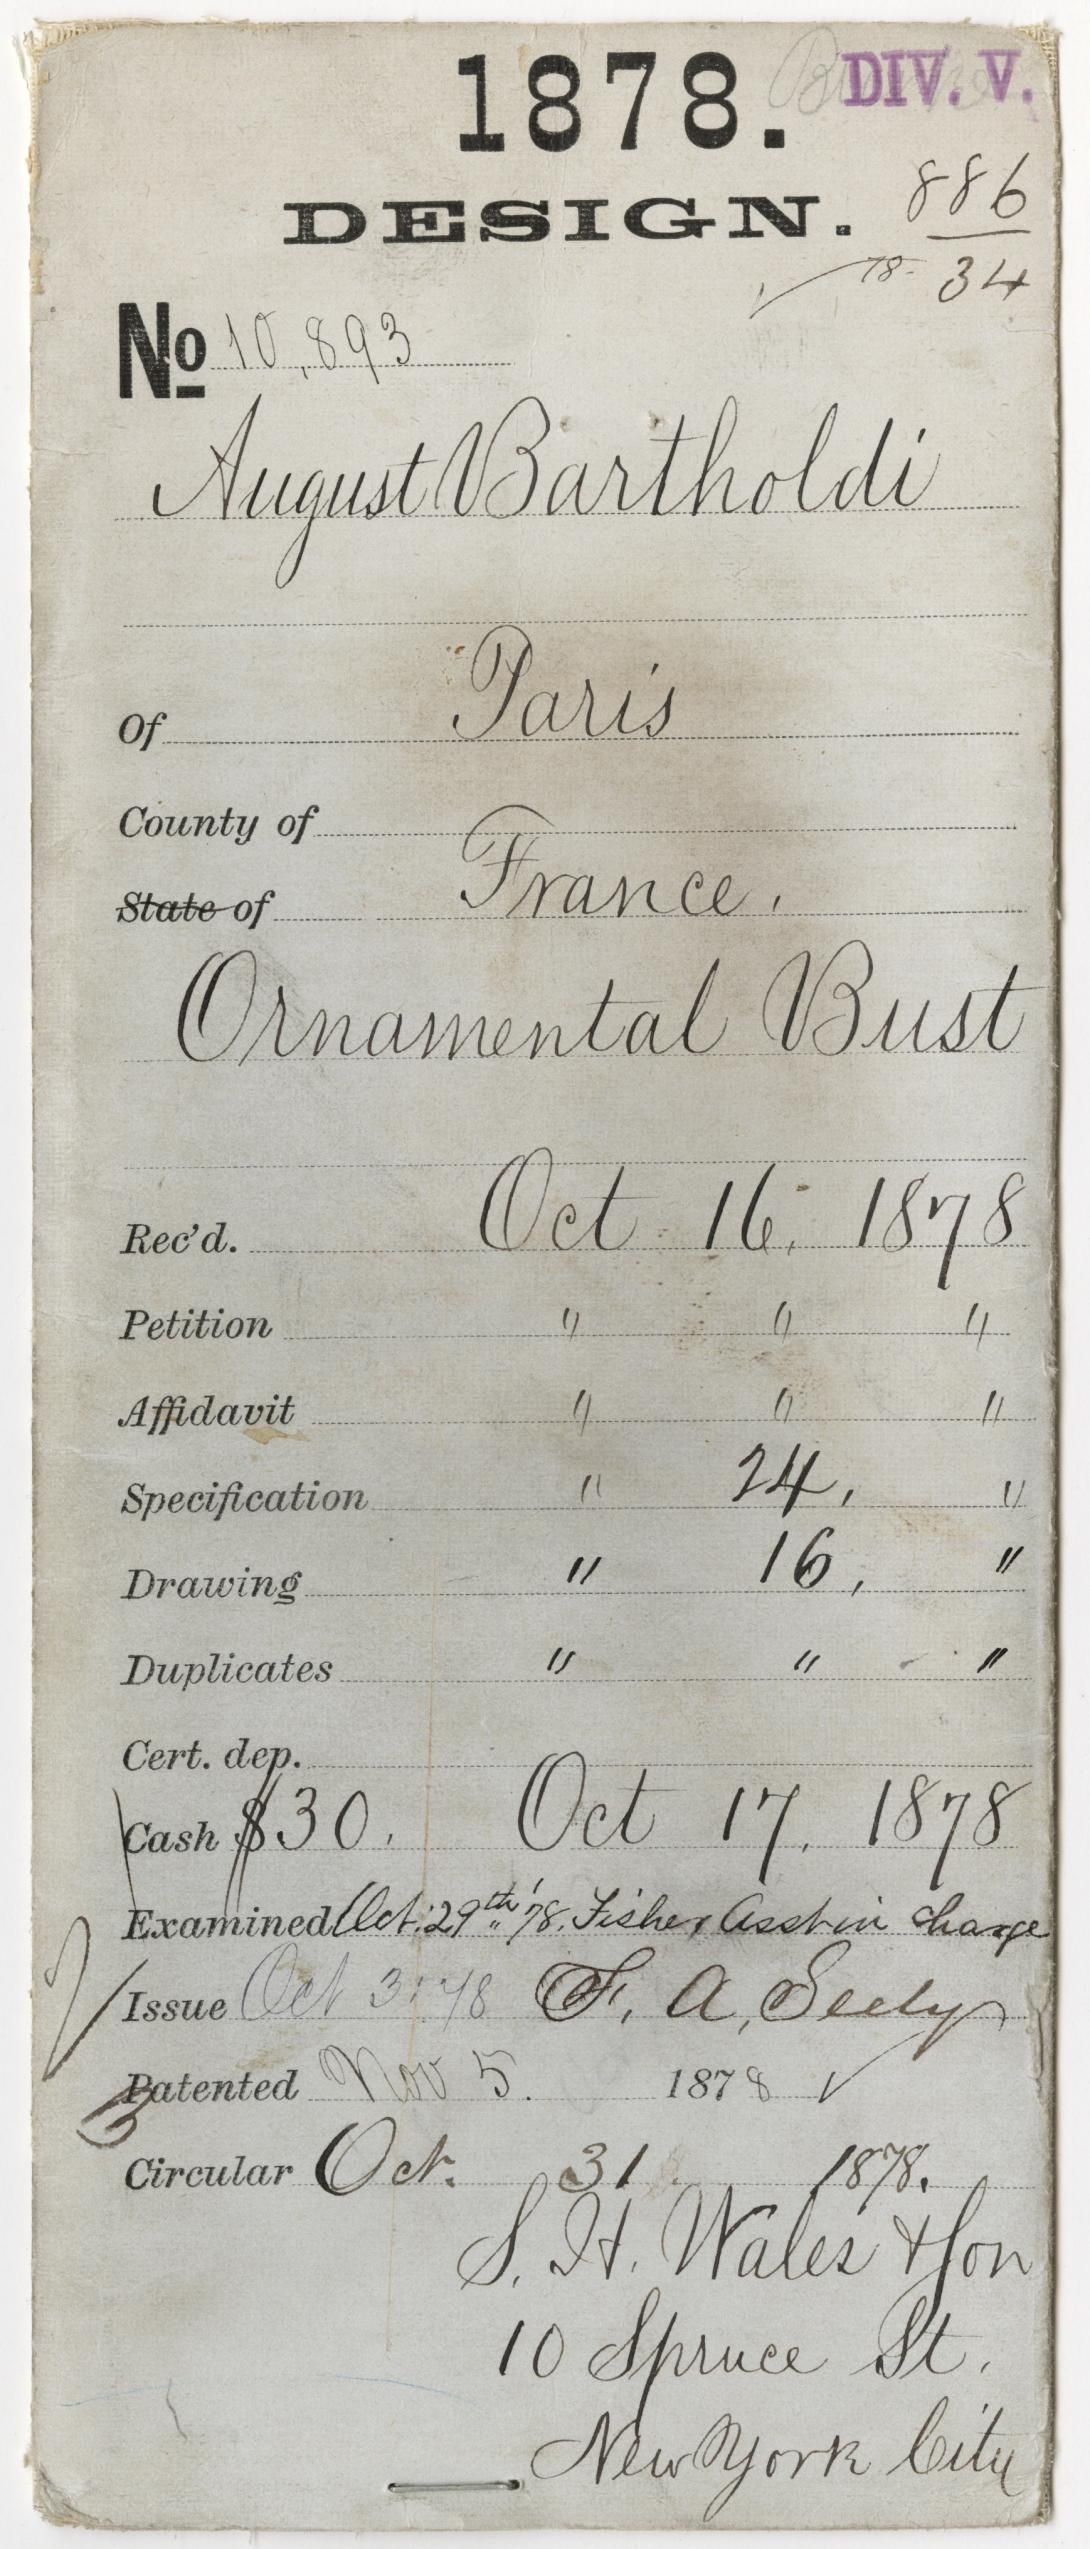 1878. DIV. V.
DESIGN. 886
18- 34
No 10,893
August Bartholdi
Of Paris
County of
State of France.
Ornamental Bust
Rec'd. Oct 16, 1878
Petition " " "
Affidavit " " "
Specification " 24, "
Drawing " 16, "
Duplicates " " "
Cert. dep.
Cash $30. Oct 17. 1878
Examined Oct. 29th '78. Fisher Asst in charge
Issue Oct 31 78 F. A. Seely
Patented Nov 5. 1878
Circular Oct. 31. 1878.
S. H. Wales & Son
10 Spruce St.
New York City